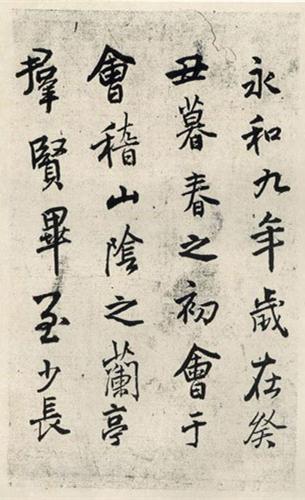 永和九年歲在癸
丑暮春之初會于
會稽山陰之蘭亭
羣賢畢至少長